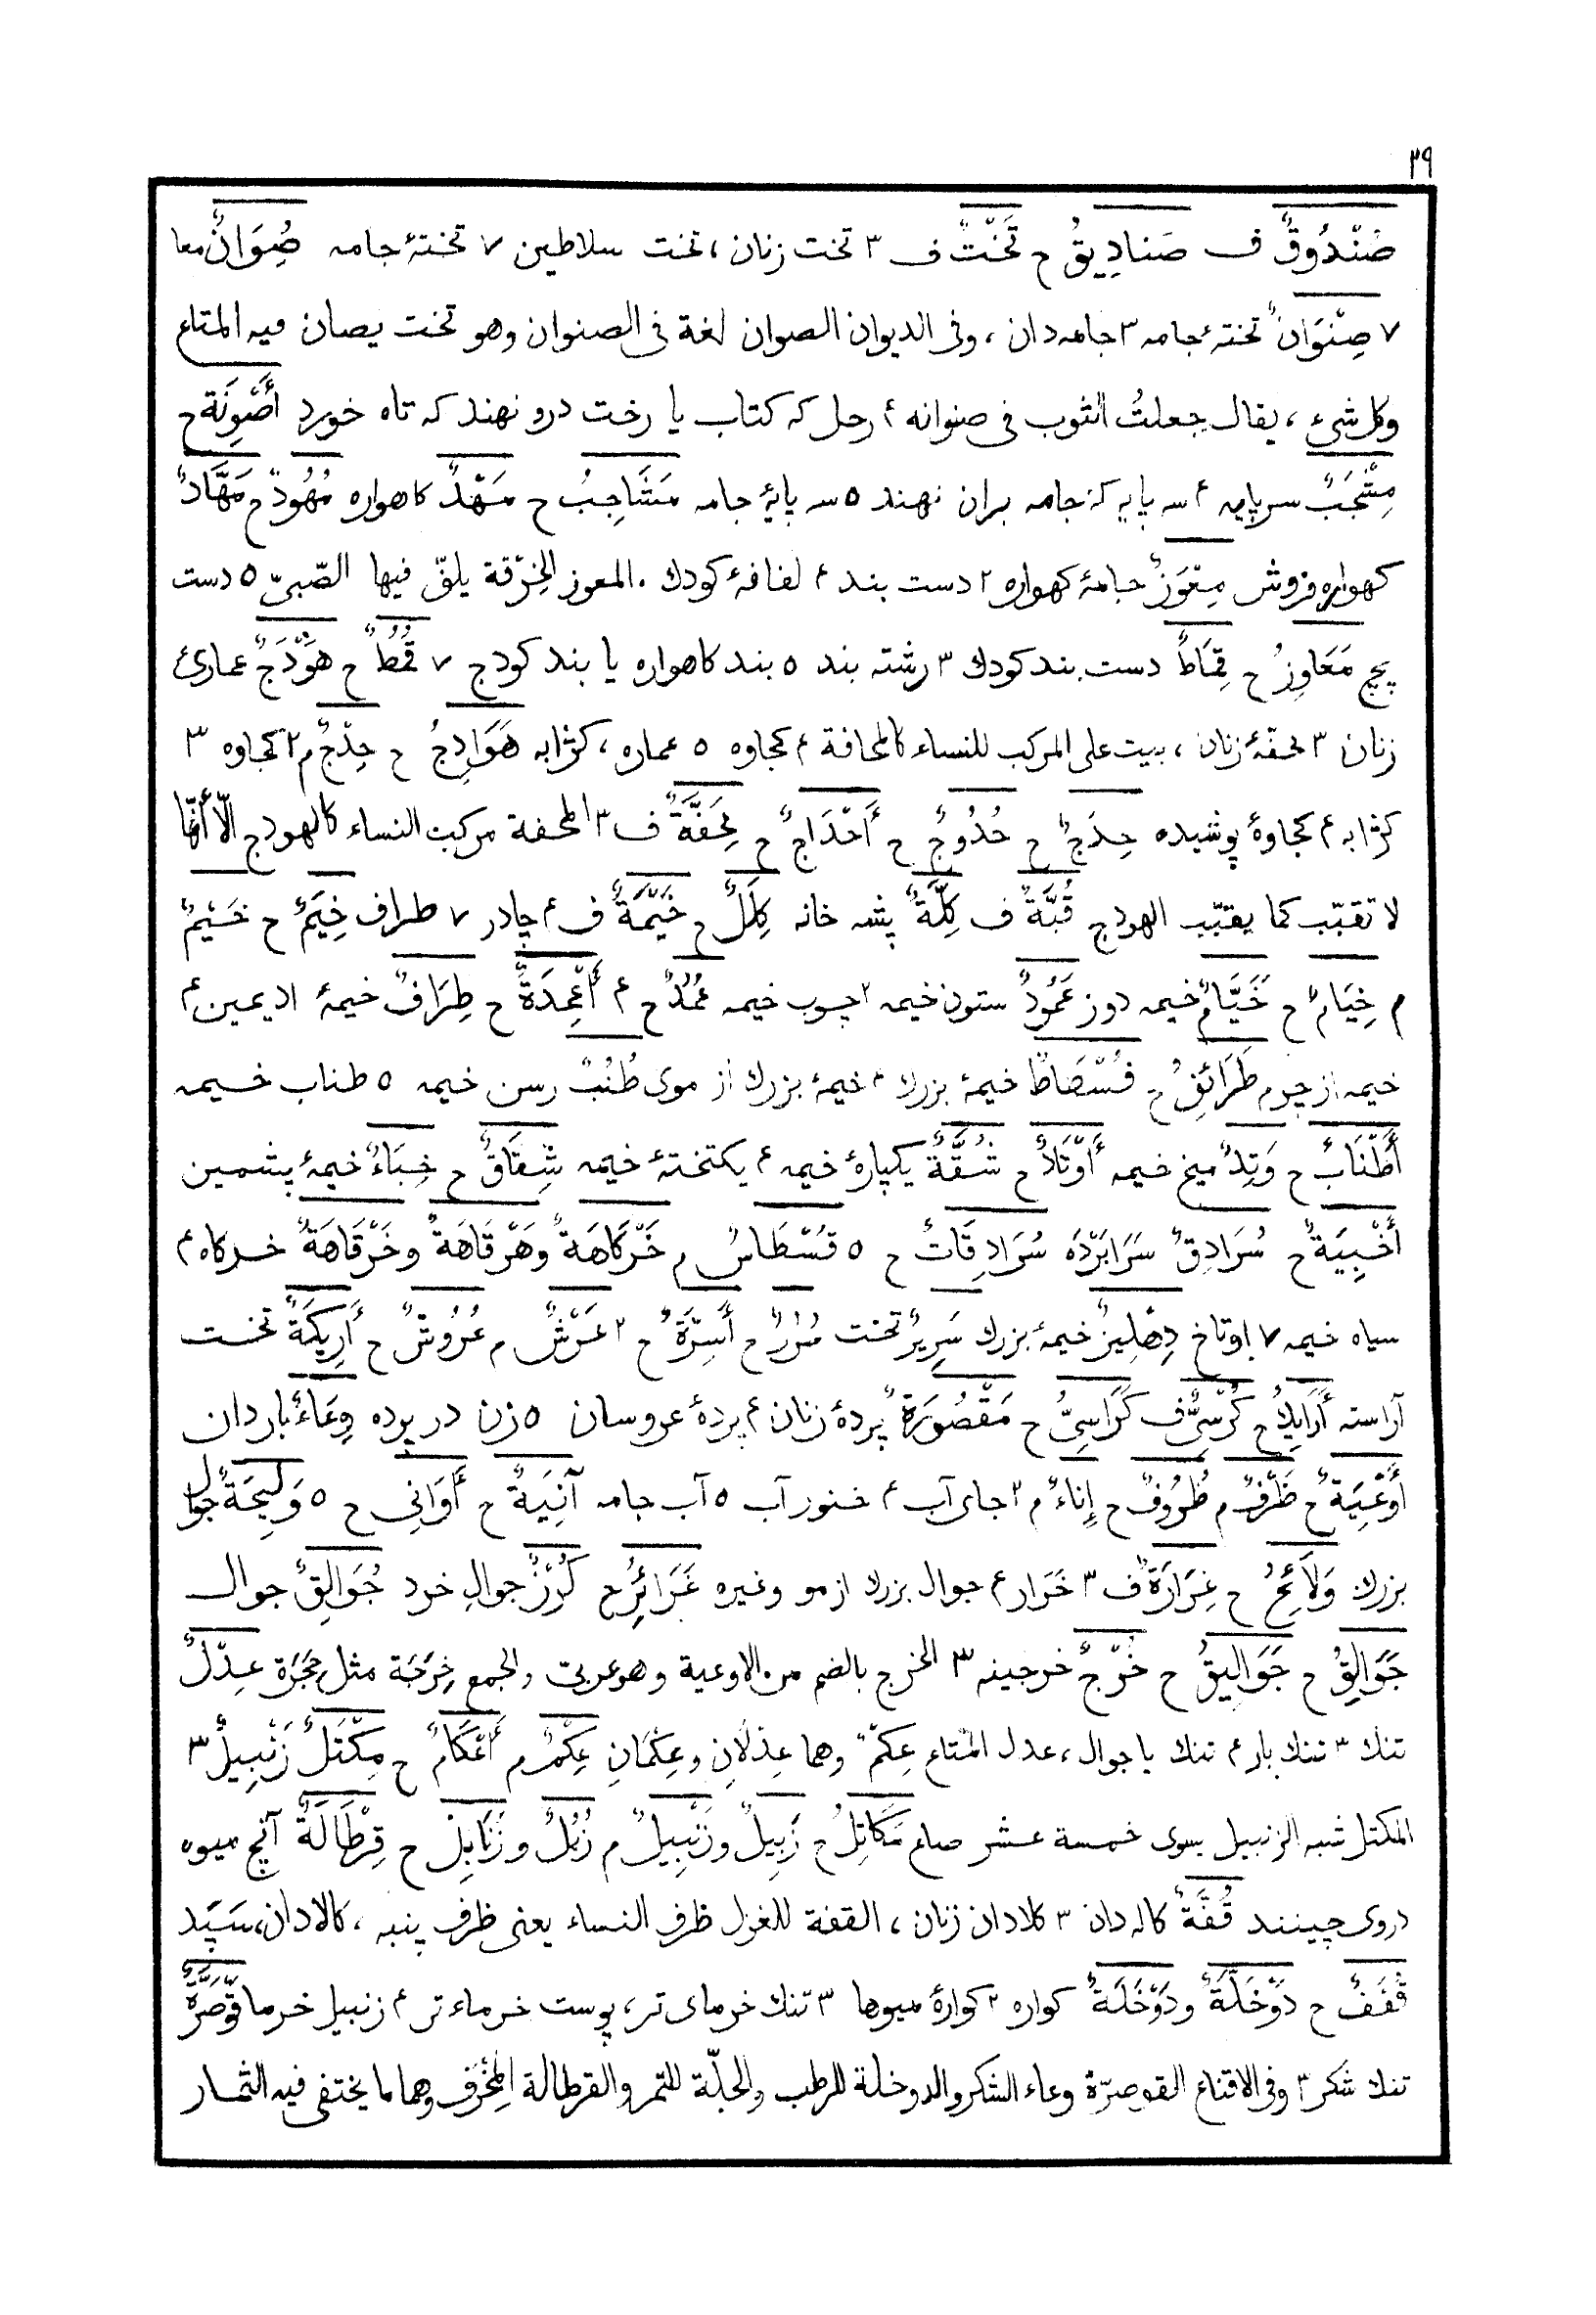 ٣٩
صُنْدُوقٌ ف صَنادِيقُ ح تَخْتٌ ف ٣ تخت زنان ، تخت سلاطين ٧ تختهٔ جامه صُِوَانٌ معا
٧ صِنْوَانٌ تختهٔ جامه ٣ جامه دان ، وفى الديوان الصوان لغة فى الصنوان وهو تخت يصان فيه المتاع
وكل شىء ، يقال جعلتُ الثوب فى صنوانه ۴ رحل كه كتاب يا رخت درو نهند كه تاه خورد أَصْوِنَة ح
مِشْجَبٌ سرپايه ۴ سه پايه كه جامه بران نهند ٥ سه پايهٔ جامه مَشَاجِبُ ح مَهْدٌ كاهواره مُهُودٌ ح مَهَّادٌ
كهواره فروش مِعْوَزٌ جامهٔ كهواره ٢ دست بند ۴ لفافهٔ كودك . المعوز الخِرْقة يلفّ فيها الصّبىّ ٥ دست
پيچ مَعَاوِزُ ح قِمَاطٌ دست بند كودك ٣ رشته بند ٥ بند كاهواره يا بند كودج ٧ قُمُطٌ ح هَوْدَجٌ عمارىٔ
زنان ٣ محفّهٔ زنان ، بيت على المركب للنساء كالمحافة ۴ كجاوه ٥ عماره ، كژابه هَوَادِجُ ح حِدْجٌ م ٢ كجاوه ٣
كژابه ۴ كجاوهٔ پوشيده حِدَجٌ ح حُدُوجٌ ح أَحْدَاجٌ ح مِحَفَّةٌ ف ٣ المحفة مركب النساء كالهودج الّا أنّها
لا تقبّب كما يقبّب الهودج قُبَّةٌ ف كِلَّةٌ پشه خانه كِلَلٌ ح خَيْمَةٌ ف ۴ چادر ٧ طراف خِيَمٌ ح خَيْمٌ
م خِيَامٌ ح خَيَّامٌ خيمه دوز عَمُودٌ ستون خيمه ٢ چوب خيمه عُمُدٌ ح ۴ أَعْمِدَةٌ ح طِرَافٌ خيمهٔ اديمين ۴
خيمه از چرم طَرَائِقُ ح فُسْطَاطٌ خيمهٔ بزرك ۴ خيمهٔ بزرك از موى طُنُبٌ رسن خيمه ٥ طناب خيمه
أَطْنَابٌ ح وَتِدٌ ميخ خيمه أَوْتَادٌ ح شُقَّةٌ يكپارهٔ خيمه ۴ يكتختهٔ خيمه شِقَاقٌ ح خِبَاءٌ خيمهٔ پشمين
أَخْبِيَةٌ ح سُرَادِقٌ سَرَابَرْدَه سُرَادِقَاتٌ ح ٥ قُسْطَاسٌ م خَرْكَاهَةٌ وهَرْقَاهَةٌ وخَرْقَاهَةٌ خركاه ۴
سياه خيمه ٧ اوتاخ دِهْلِيزٌ خيمهٔ بزرك سَرِيرٌ تخت سُرُرٌ ح أَسِرَّةٌ ح ٢ عَرْشٌ م عُرُوشٌ ح أَرِيكَةٌ تخت
آراسته أَرَايِكُ ح كُرْسِىٌّ ف كَرَاسِىُّ ح مَقْصُورَةٌ پردهٔ زنان ۴ پردهٔ عروسان ٥ زن در پرده وِعَاءٌ باردان
أَوْعِيَةٌ ح ظَرْفٌ م ظُرُوفٌ ح إِنَاءٌ م ٢ جاى آب ۴ خنور آب ٥ آب جامه آنِيَةٌ ح أَوَانِى ح ٥ وَلِيجَةٌ جوال
بزرك وَلَائِجُ ح غِرَارَةٌ ف ٣ خَرَار ۴ جوال بزرك از مو وغيره غَرَائِرُ ح كُرْزٌ جوالِ خرد جُوَالِقٌ جوال
جَوَالِقُ ح جَوَالِيقُ ح خُرْجٌ خرجينه ٣ الخرج بالضم من الاوعية وهو عربىّ والجمع خِرَجَة مثل جِحَرَة عِدْلٌ
تنك ٣ تنك بار ۴ تنك يا جوال ، عدل المتاع عِكْمٌ وهما عِدْلَانِ وعِكْمَانِ عِكْمٌ م أَعْكَامٌ ح مِكْتَلٌ زَنْبِيلٌ ٣
المكتل شبه الزنبيل يسوى خمسة عشر صاع مَكَاتِلُ ح زَبِيلٌ وزَنْبِيلٌ م زُبُلٌ وزَنَابِلُ ح قِرْطَالَةٌ آنچ ميوه
دروى چينند قُفَّةٌ كاله دان ٣ كلادان زنان ، القفة للغزل ظرف النساء يعنى ظرف پنبه ، كالادان، سَپَد
قُفَفٌ ح دَوْخَلَّةٌ ودَوْخَلَةٌ كواره ٢ كوارهٔ ميوها ٣ تنك خرماى تر ، پوست خرماء تر ۴ زنبيل خرما قَوْصَرَّةٌ
تنك شكر ٣ وفى الاقناع القوصرّة وعاء الشكر والدوخلة للرطب والجلّة للتمر والقرطالة المِخْرَف وهما ما يختفى فيه الثمار